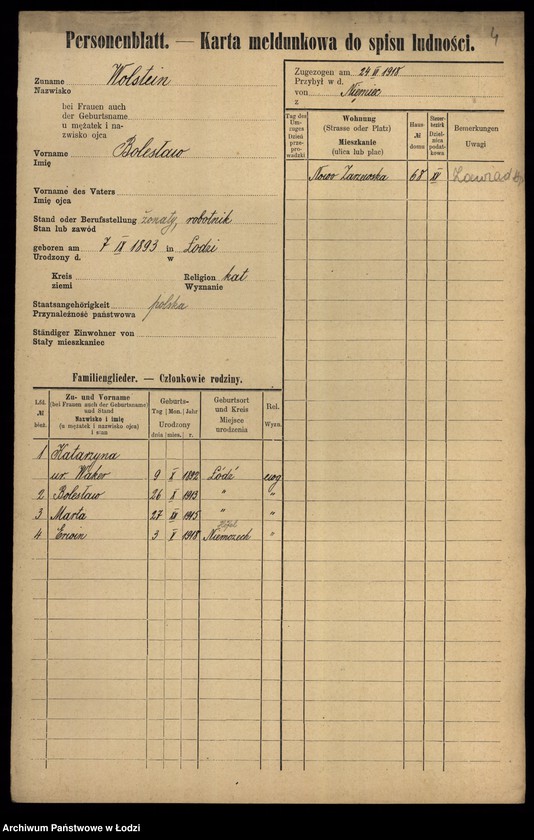 4
Personenblatt. — Karta meldunkowa do spisu ludności.
Zuname Wolstein
Nazwisko
bei Frauen auch
der Geburtsname
u mężatek i na-
zwisko ojca
Vorname Bolesław
Imię
Vorname des Vaters
Imię ojca
Stand oder Berufsstellung żonaty, robotnik
Stan lub zawód
geboren am 7 IX 1893 in Łodzi
Urodzony d. w
Kreis Religion kat
ziemi Wyznanie
Staatsangehörigkeit polska
Przynależność państwowa
Ständiger Einwohner von
Stały mieszkaniec
Zugezogen am 24 VI 1918
Przybył w d.
von Niemiec
z
Tag des Um-zuges Dzień prze-pro-wadzki
Wohnung (Strasse oder Platz) Mieszkanie (ulica lub plac)
Haus- № domu
Steuer-bezirk Dziel-nica podat-kowa
Bemerkungen Uwagi
Nowo Zarzewska 68 XI
Familienglieder. — Członkowie rodziny.
Lfd. № bież.
Zu- und Vorname (bei Frauen auch der Geburtsname) und Stand Nazwisko i imię (u mężatek i nazwisko ojca) i stan
Geburts- Tag Mon. Jahr Urodzony dnia mies. r.
Geburtsort und Kreis Miejsce urodzenia
Rel. Wyzn.
1 Katarzyna
ur. Waker 9 X 1892 Łódź ewg
2 Bolesław 26 X 1913 " "
3 Marta 27 1915 " "
4 Erwin 3 V 1918 Niemczech "
Archiwum Państwowe w Łodzi